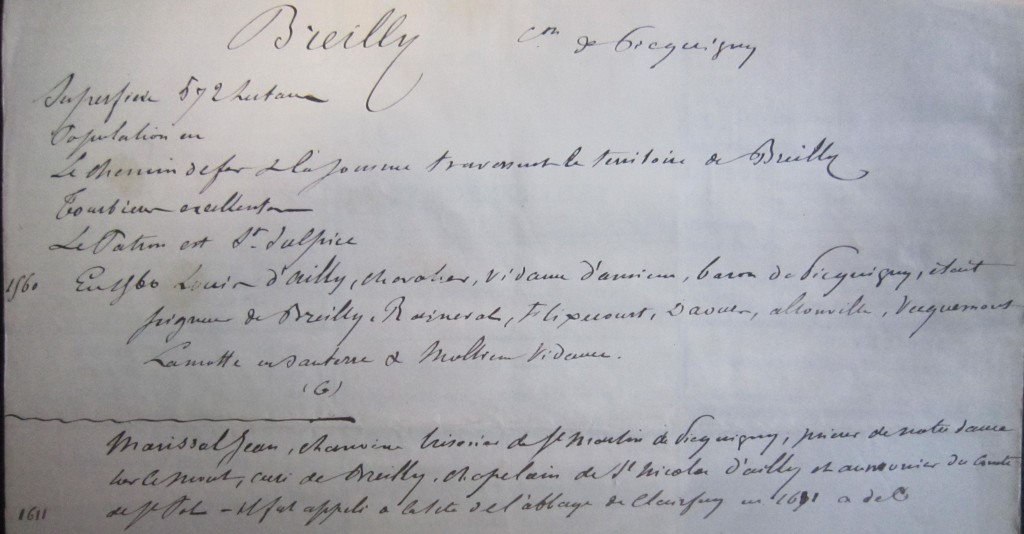 Breilly con de Picquigny
Superficie 572 hectares
Population en
Le chemin de fer & la Somme traversent le territoire de Breilly
Tourbières excellentes
Le Patron est St Sulpice
1560 En 1560 Louis d'ailly, chevalier, vidame d'amiens, baron de Picquigny, était
seigneur de Breilly, Raineval, Flixecourt, Daours, allonville, Vecquemont
Lamotte en Santerre & Molliens Vidame.
(G)
Marissal Jean, chanoine trésorier de St Martin de Picquigny, prieur de notre dame
sur le mont, curé de Breilly, chapelain de St Nicolas d'ailly et aumonier du Comte
1611 de St Pol - il fut appelé a la tête de l'abbaye de Clairfay en 1611 a de